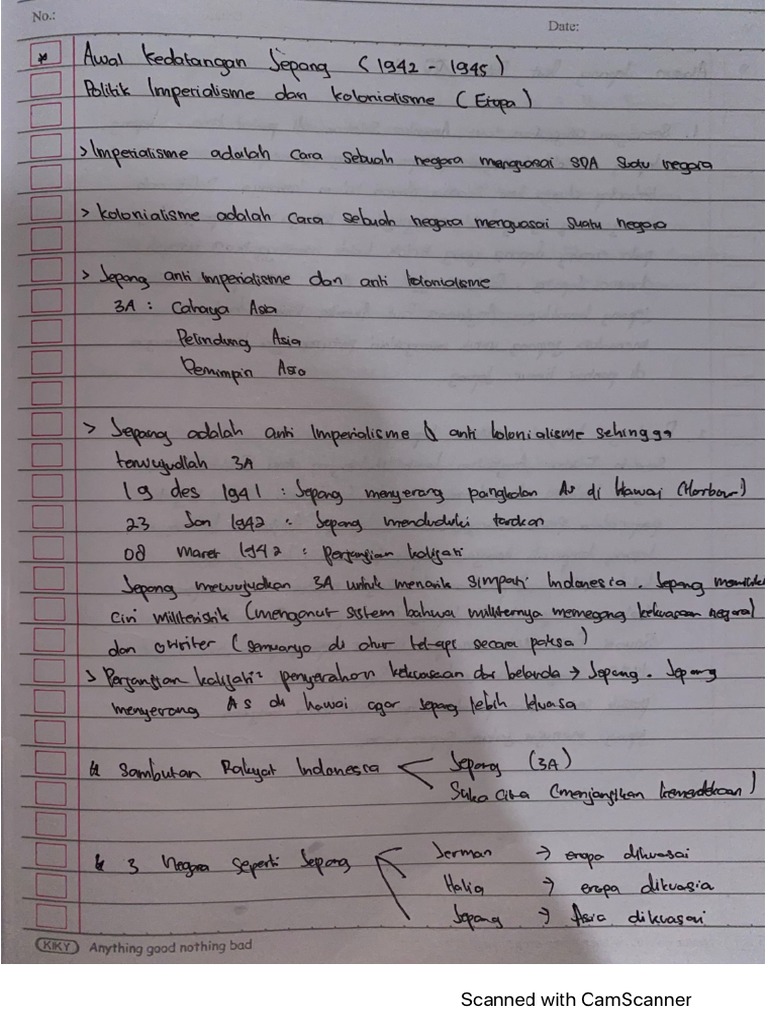 No.:
Date:
* Awal Kedatangan Jepang (1942 - 1945)
Politik Imperialisme dan kolonialisme (Eropa)
> Imperialisme adalah cara sebuah negara menguasai SDA suatu negara
> kolonialisme adalah cara sebuah negara menguasai suatu negara
> Jepang anti imperialisme dan anti kolonialisme
3A : Cahaya Asia
Pelindung Asia
Pemimpin Asia
> Jepang adalah anti Imperialisme & anti kolonialisme sehingga
terwujudlah 3A
19 des 1941 : Jepang menyerang pangkalan As di Hawai (Harbour)
23 Jan 1942 : Jepang menduduki tarakan
08 maret 1942 : Perjanjian kalijati
Jepang mewujudkan 3A untuk menarik simpati Indonesia. Jepang memiliki
ciri militeristik (menganut sistem bahwa militernya memegang kekuasaan negara)
dan otoriter (semuanya di atur secara paksa)
> Perjanjian kalijati : penyerahan kekuasaan dari belanda → Jepang. Jepang
menyerang AS di hawai agar jepang lebih leluasa
Sambutan Rakyat Indonesia < Jepang (3A)
Suka cita (menjanjikan kemerdekaan)
3 Negara seperti Jepang
Jerman → eropa dikuasai
Italia → eropa dikuasia
Jepang → Asia dikuasai
KIKY Anything good nothing bad
Scanned with CamScanner